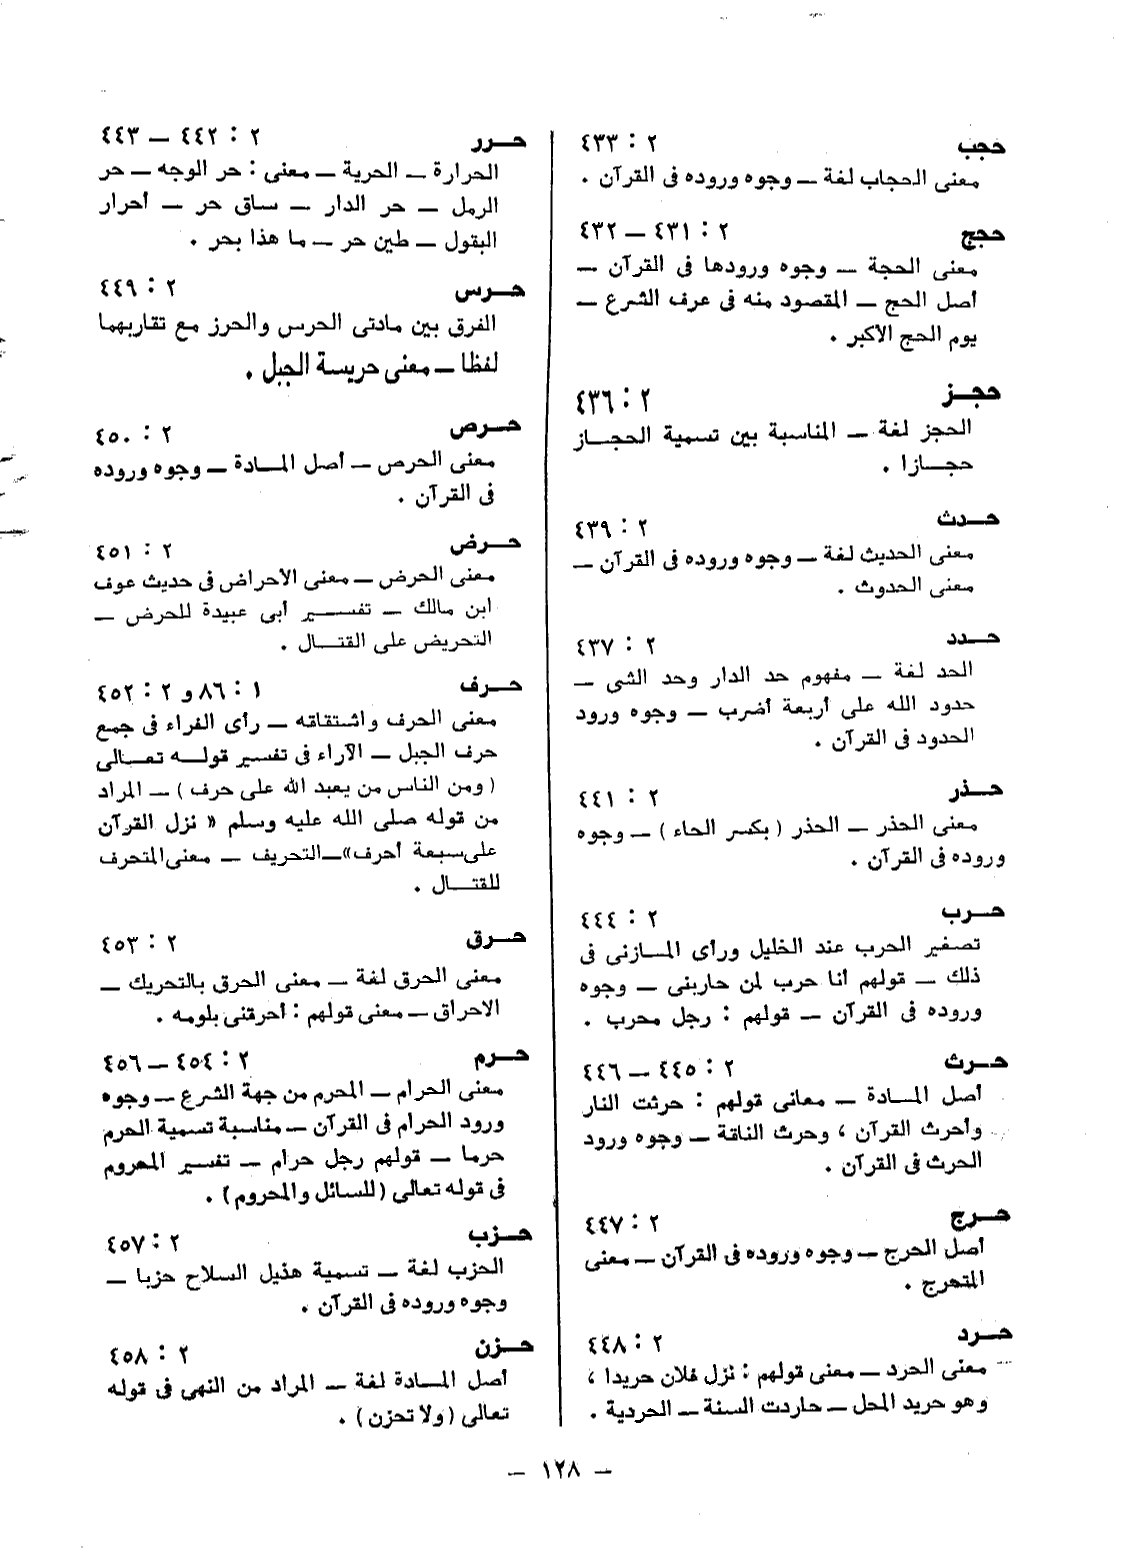 حجب ٢ : ٤٣٣
معنى الحجاب لغة – وجوه وروده فى القرآن .
حجج ٢ : ٤٣١ – ٤٣٢
معنى الحجة – وجوه ورودها فى القرآن –
أصل الحج – المقصود منه فى عرف الشرع –
يوم الحج الاكبر .
حجـز ٢ : ٤٣٦
الحجز لغة – المناسبة بين تسمية الحجـاز
حجـازا .
حـدث ٢ : ٤٣٩
معنى الحديث لغة – وجوه وروده فى القرآن –
معنى الحدوث .
حـدد ٢ : ٤٣٧
الحد لغة – مفهوم حد الدار وحد الشى –
حدود الله على أربعة أضرب – وجوه ورود
الحدود فى القرآن .
حـذر ٢ : ٤٤١
معنى الحذر – الحذر ( بكسر الحاء ) – وجوه
وروده فى القرآن .
حـرب ٢ : ٤٤٤
تصغير الحرب عند الخليل ورأى المـازنى فى
ذلك – قولهم أنا حرب لمن حاربنى – وجوه
وروده فى القرآن – قولهم : رجل محرب .
حـرث ٢ : ٤٤٥ – ٤٤٦
أصل المـادة – معانى قولهم : حرثت النار
وأحرث القرآن ، وحرث الناقة – وجوه ورود
الحرث فى القرآن .
حـرج ٢ : ٤٤٧
أصل الحرج – وجوه وروده فى القرآن – معنى
المتحرج .
حـرد ٢ : ٤٤٨
معنى الحرد – معنى قولهم : نزل فلان حريدا ،
وهو حريد المحل – حاردت السنة – الحردية .
حـرر ٢ : ٤٤٢ – ٤٤٣
الحرارة – الحرية – معنى : حر الوجه – حر
الرمل – حر الدار – ساق حر – أحرار
البقول – طين حر – ما هذا بحر .
حـرس ٢ : ٤٤٩
الفرق بين مادتى الحرس والحرز مع تقاربهما
لفظا – معنى حريسة الجبل .
حـرص ٢ : ٤٥٠
معنى الحرص – أصل المـادة – وجوه وروده
فى القرآن .
حـرض ٢ : ٤٥١
معنى الحرض – معنى الأحراض فى حديث عوف
ابن مالك – تفسـير أبى عبيدة للحرض –
التحريض على القتـال .
حـرف ١ : ٨٦ و ٢ : ٤٥٢
معنى الحرف واشتقاقه – رأى الفراء فى جمع
حرف الجبل – الآراء فى تفسير قولـه تعـالى
( ومن الناس من يعبد الله على حرف ) – المراد
من قوله صلى الله عليه وسلم « نزل القرآن
على سبعة أحرف » – التحريف – معنى المتحرف
للقتـال .
حـرق ٢ : ٤٥٣
معنى الحرق لغة – معنى الحرق بالتحريك –
الاحراق – معنى قولهم : أحرقنى بلومه .
حـرم ٢ : ٤٥٤ – ٤٥٦
معنى الحرام – المحرم من جهة الشرع – وجوه
ورود الحرام فى القرآن – مناسبة تسمية الحرم
حرما – قولهم رجل حرام – تفسير المحروم
فى قوله تعالى ( للسائل والمحروم ) .
حـزب ٢ : ٤٥٧
الحزب لغة – تسمية هذيل السلاح حزبا –
وجوه وروده فى القرآن .
حـزن ٢ : ٤٥٨
أصل المـادة لغة – المراد من النهى فى قوله
تعالى ( ولا تحزن ) .
– ١٢٨ –